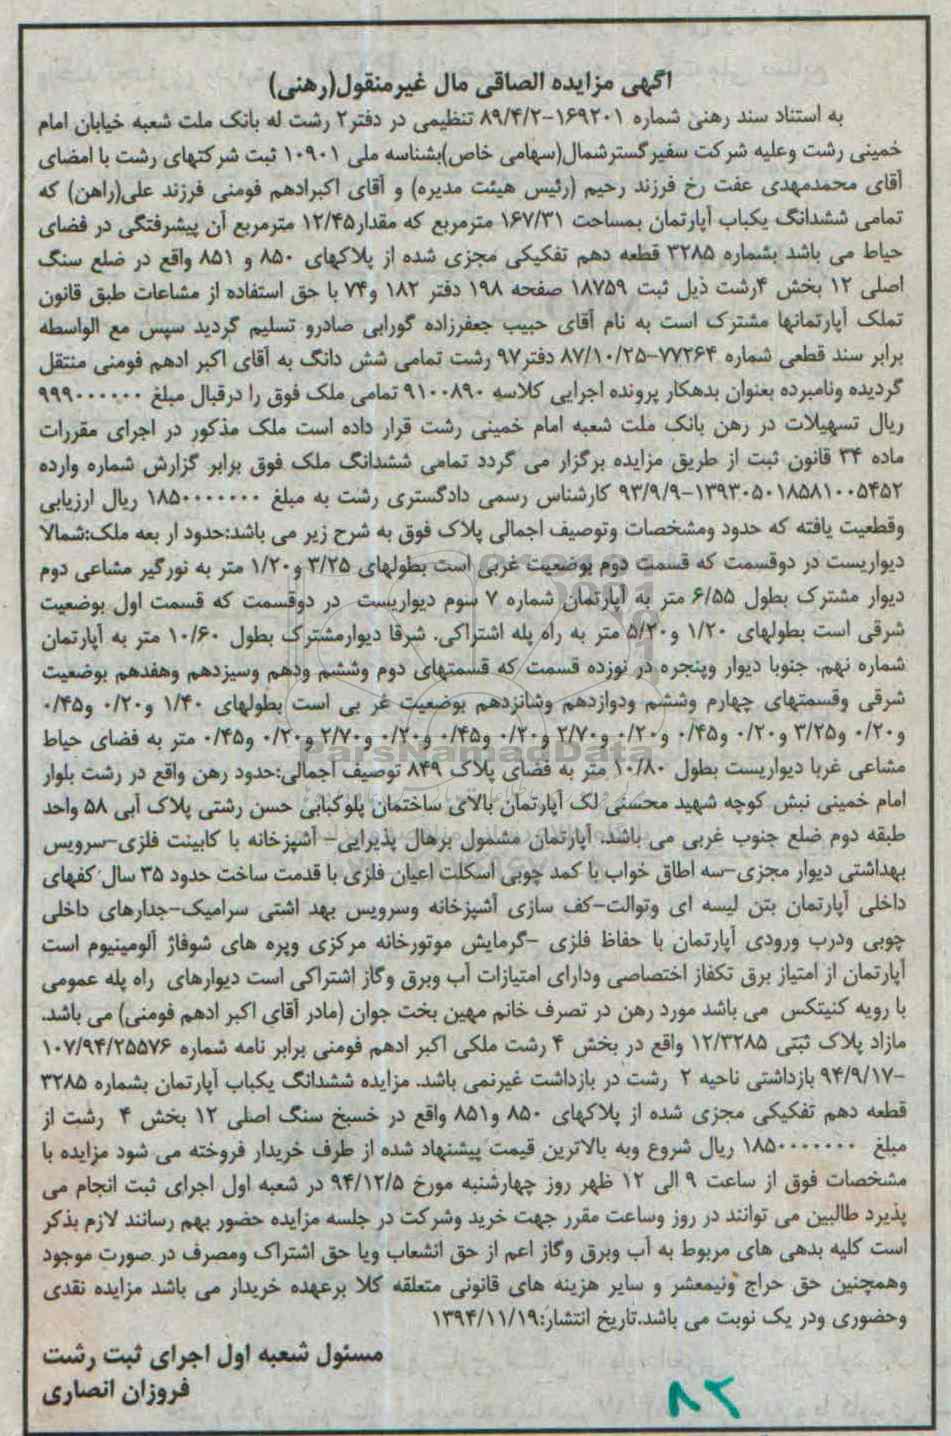 آگهی مزایده الصاقی مال غیرمنقول(رهنی)
به استناد سند رهنی شماره ۱۶۹۲۰۱-۸۹/۴/۲ تنظیمی در دفتر۲ رشت له بانک ملت شعبه خیابان امام
خمینی رشت وعلیه شرکت سفیرگسترشمال(سهامی خاص)بشناسه ملی ۱۰۹۰۱ ثبت شرکتهای رشت با امضای
آقای محمدمهدی عفت رخ فرزند رحیم (رئیس هیئت مدیره) و آقای اکبرادهم فومنی فرزند علی(راهن) که
تمامی ششدانگ یکباب آپارتمان بمساحت ۱۶۷/۳۱ مترمربع که مقدار۱۲/۴۵ مترمربع آن پیشرفتگی در فضای
حیاط می باشد بشماره ۳۲۸۵ قطعه دهم تفکیکی مجزی شده از پلاکهای ۸۵۰ و ۸۵۱ واقع در ضلع سنگ
اصلی ۱۲ بخش ۴رشت ذیل ثبت ۱۸۷۵۹ صفحه ۱۹۸ دفتر ۱۸۲ و۷۴ با حق استفاده از مشاعات طبق قانون
تملک آپارتمانها مشترک است به نام آقای حبیب جعفرزاده گورابی صادرو تسلیم گردید سپس مع الواسطه
برابر سند قطعی شماره ۷۷۲۶۴-۸۷/۱۰/۲۵ دفتر۹۷ رشت تمامی شش دانگ به آقای اکبر ادهم فومنی منتقل
گردیده ونامبرده بعنوان بدهکار پرونده اجرایی کلاسه ۹۱۰۰۸۹۰ تمامی ملک فوق را درقبال مبلغ ۹۹۹۰۰۰۰۰۰
ریال تسهیلات در رهن بانک ملت شعبه امام خمینی رشت قرار داده است ملک مذکور در اجرای مقررات
ماده ۳۴ قانون ثبت از طریق مزایده برگزار می گردد تمامی ششدانگ ملک فوق برابر گزارش شماره وارده
۱۳۹۳۰۵۰۱۸۵۸۱۰۰۵۴۵۲-۹۳/۹/۹ کارشناس رسمی دادگستری رشت به مبلغ ۱۸۵۰۰۰۰۰۰۰ ریال ارزیابی
وقطعیت یافته که حدود ومشخصات وتوصیف اجمالی پلاک فوق به شرح زیر می باشد:حدود ار بعه ملک:شمالا
دیواریست در دوقسمت که قسمت دوم بوضعیت غربی است بطولهای ۳/۲۵ و۱/۲۰ متر به نورگیر مشاعی دوم
دیوار مشترک بطول ۶/۵۵ متر به آپارتمان شماره ۷ سوم دیواریست در دوقسمت که قسمت اول بوضعیت
شرقی است بطولهای ۱/۲۰ و۵/۲۰ متر به راه پله اشتراکی. شرقا دیوارمشترک بطول ۱۰/۶۰ متر به آپارتمان
شماره نهم. جنوبا دیوار وپنجره در نوزده قسمت که قسمتهای دوم وششم ودهم وسیزدهم وهفدهم بوضعیت
شرقی وقسمتهای چهارم وششم ودوازدهم وشانزدهم بوضعیت غر بی است بطولهای ۱/۴۰ و۰/۲۰ و۰/۴۵
و۰/۲۰ و۳/۲۵ و۰/۲۰ و۰/۴۵ و۰/۲۰ و۲/۷۰ و۰/۲۰ و۰/۴۵ و۰/۲۰ و۲/۷۰ و۰/۲۰ و۰/۴۵ متر به فضای حیاط
مشاعی غربا دیواریست بطول ۱۰/۸۰ متر به فضای پلاک ۸۴۹ توصیف اجمالی:حدود رهن واقع در رشت بلوار
امام خمینی نبش کوچه شهید محسنی لک آپارتمان بالای ساختمان پلوکبابی حسن رشتی پلاک آبی ۵۸ واحد
طبقه دوم ضلع جنوب غربی می باشد. آپارتمان مشمول برهال پذیرایی- آشپزخانه با کابینت فلزی-سرویس
بهداشتی دیوار مجزی-سه اطاق خواب با کمد چوبی اسکلت اعیان فلزی با قدمت ساخت حدود ۳۵ سال کفهای
داخلی آپارتمان بتن لیسه ای وتوالت-کف سازی آشپزخانه وسرویس بهد اشتی سرامیک-جدارهای داخلی
چوبی ودرب ورودی آپارتمان با حفاظ فلزی -گرمایش موتورخانه مرکزی وپره های شوفاژ آلومینیوم است
آپارتمان از امتیاز برق تکفاز اختصاصی ودارای امتیازات آب وبرق وگاز اشتراکی است دیوارهای راه پله عمومی
با رویه کنیتکس می باشد مورد رهن در تصرف خانم مهین بخت جوان (مادر آقای اکبر ادهم فومنی) می باشد.
مازاد پلاک ثبتی ۱۲/۳۲۸۵ واقع در بخش ۴ رشت ملکی اکبر ادهم فومنی برابر نامه شماره ۱۰۷/۹۴/۲۵۵۷۶
-۹۴/۹/۱۷ بازداشتی ناحیه ۲ رشت در بازداشت غیرنمی باشد. مزایده ششدانگ یکباب آپارتمان بشماره ۳۲۸۵
قطعه دهم تفکیکی مجزی شده از پلاکهای ۸۵۰ و۸۵۱ واقع در خسبخ سنگ اصلی ۱۲ بخش ۴ رشت از
مبلغ ۱۸۵۰۰۰۰۰۰۰ ریال شروع وبه بالاترین قیمت پیشنهاد شده از طرف خریدار فروخته می شود مزایده با
مشخصات فوق از ساعت ۹ الی ۱۲ ظهر روز چهارشنبه مورخ ۹۴/۱۲/۵ در شعبه اول اجرای ثبت انجام می
پذیرد طالبین می توانند در روز وساعت مقرر جهت خرید وشرکت در جلسه مزایده حضور بهم رسانند لازم بذکر
است کلیه بدهی های مربوط به آب وبرق وگاز اعم از حق انشعاب ویا حق اشتراک ومصرف در صورت موجود
وهمچنین حق حراج ونیمعشر و سایر هزینه های قانونی متعلقه کلا برعهده خریدار می باشد مزایده نقدی
وحضوری ودر یک نوبت می باشد.تاریخ انتشار:۱۳۹۴/۱۱/۱۹
مسئول شعبه اول اجرای ثبت رشت
فروزان انصاری
۸۲
ParsNamadData